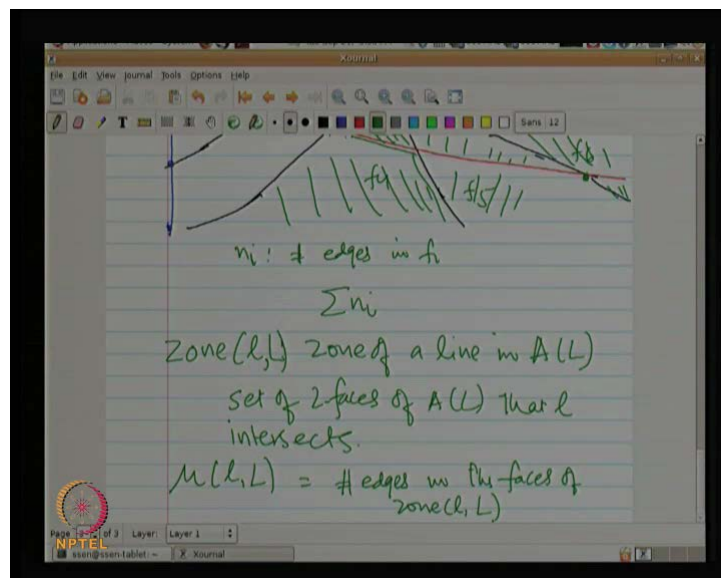 Xournal
File Edit View Journal Tools Options Help
T Sans 12
f4 f5 f6
ni : # edges in fi
Σni
Zone(l,L) Zone of a line in A(L)
set of 2-faces of A(L) that l
intersects.
M(l,L) = # edges in the faces of
zone(l, L)
Page of 3 Layer: Layer 1
NPTEL
ssen@ssen-tablet: ~ Xournal